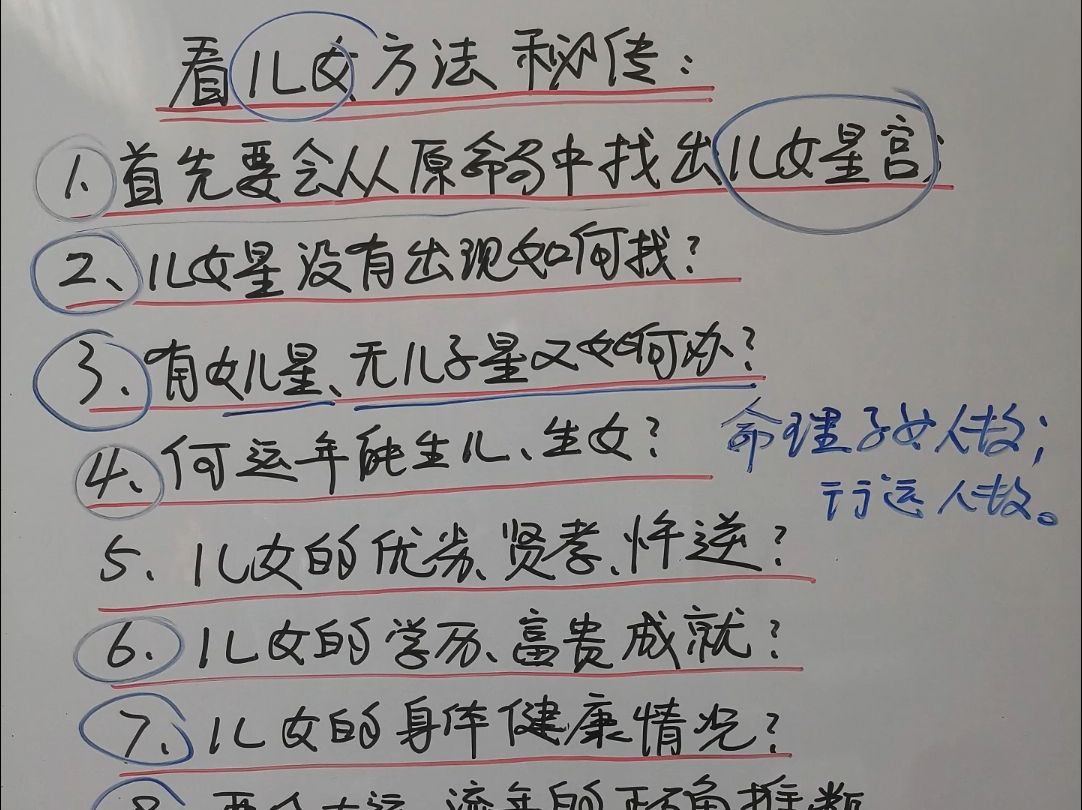 看儿女方法秘传:
1、首先要会从原命局中找出儿女星宫;
2、儿女星没有出现如何找?
3、有女儿星、无儿子星又如何办?
4、何运年能生儿、生女?
命理子女人故;
行运人故。
5、儿女的优劣、贤孝、忤逆?
6、儿女的学历、富贵成就?
7、儿女的身体健康情况?
8、要会大运、流年的正确推数